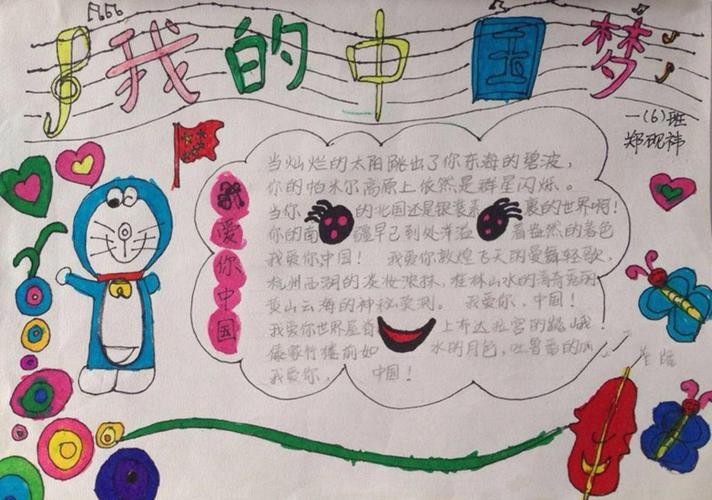 我的中国梦
一(6)班
郑砚祎
我爱你中国
当灿烂的太阳跳出了你东海的碧波，
你的帕米尔高原上依然是群星闪烁。
当你的北国还是银装素裹的世界啊！
你的南疆早已到处洋溢着盎然的春色
我爱你中国！ 我爱你敦煌飞天的曼舞轻歌，
杭州西湖的淡妆浓抹，桂林山水的清奇秀丽
黄山云海的神秘莫测。 我爱你，中国！
我爱你世界屋脊上布达拉宫的巍峨！
傣家竹楼前如水的月色，吐鲁番的
我爱你， 中国！